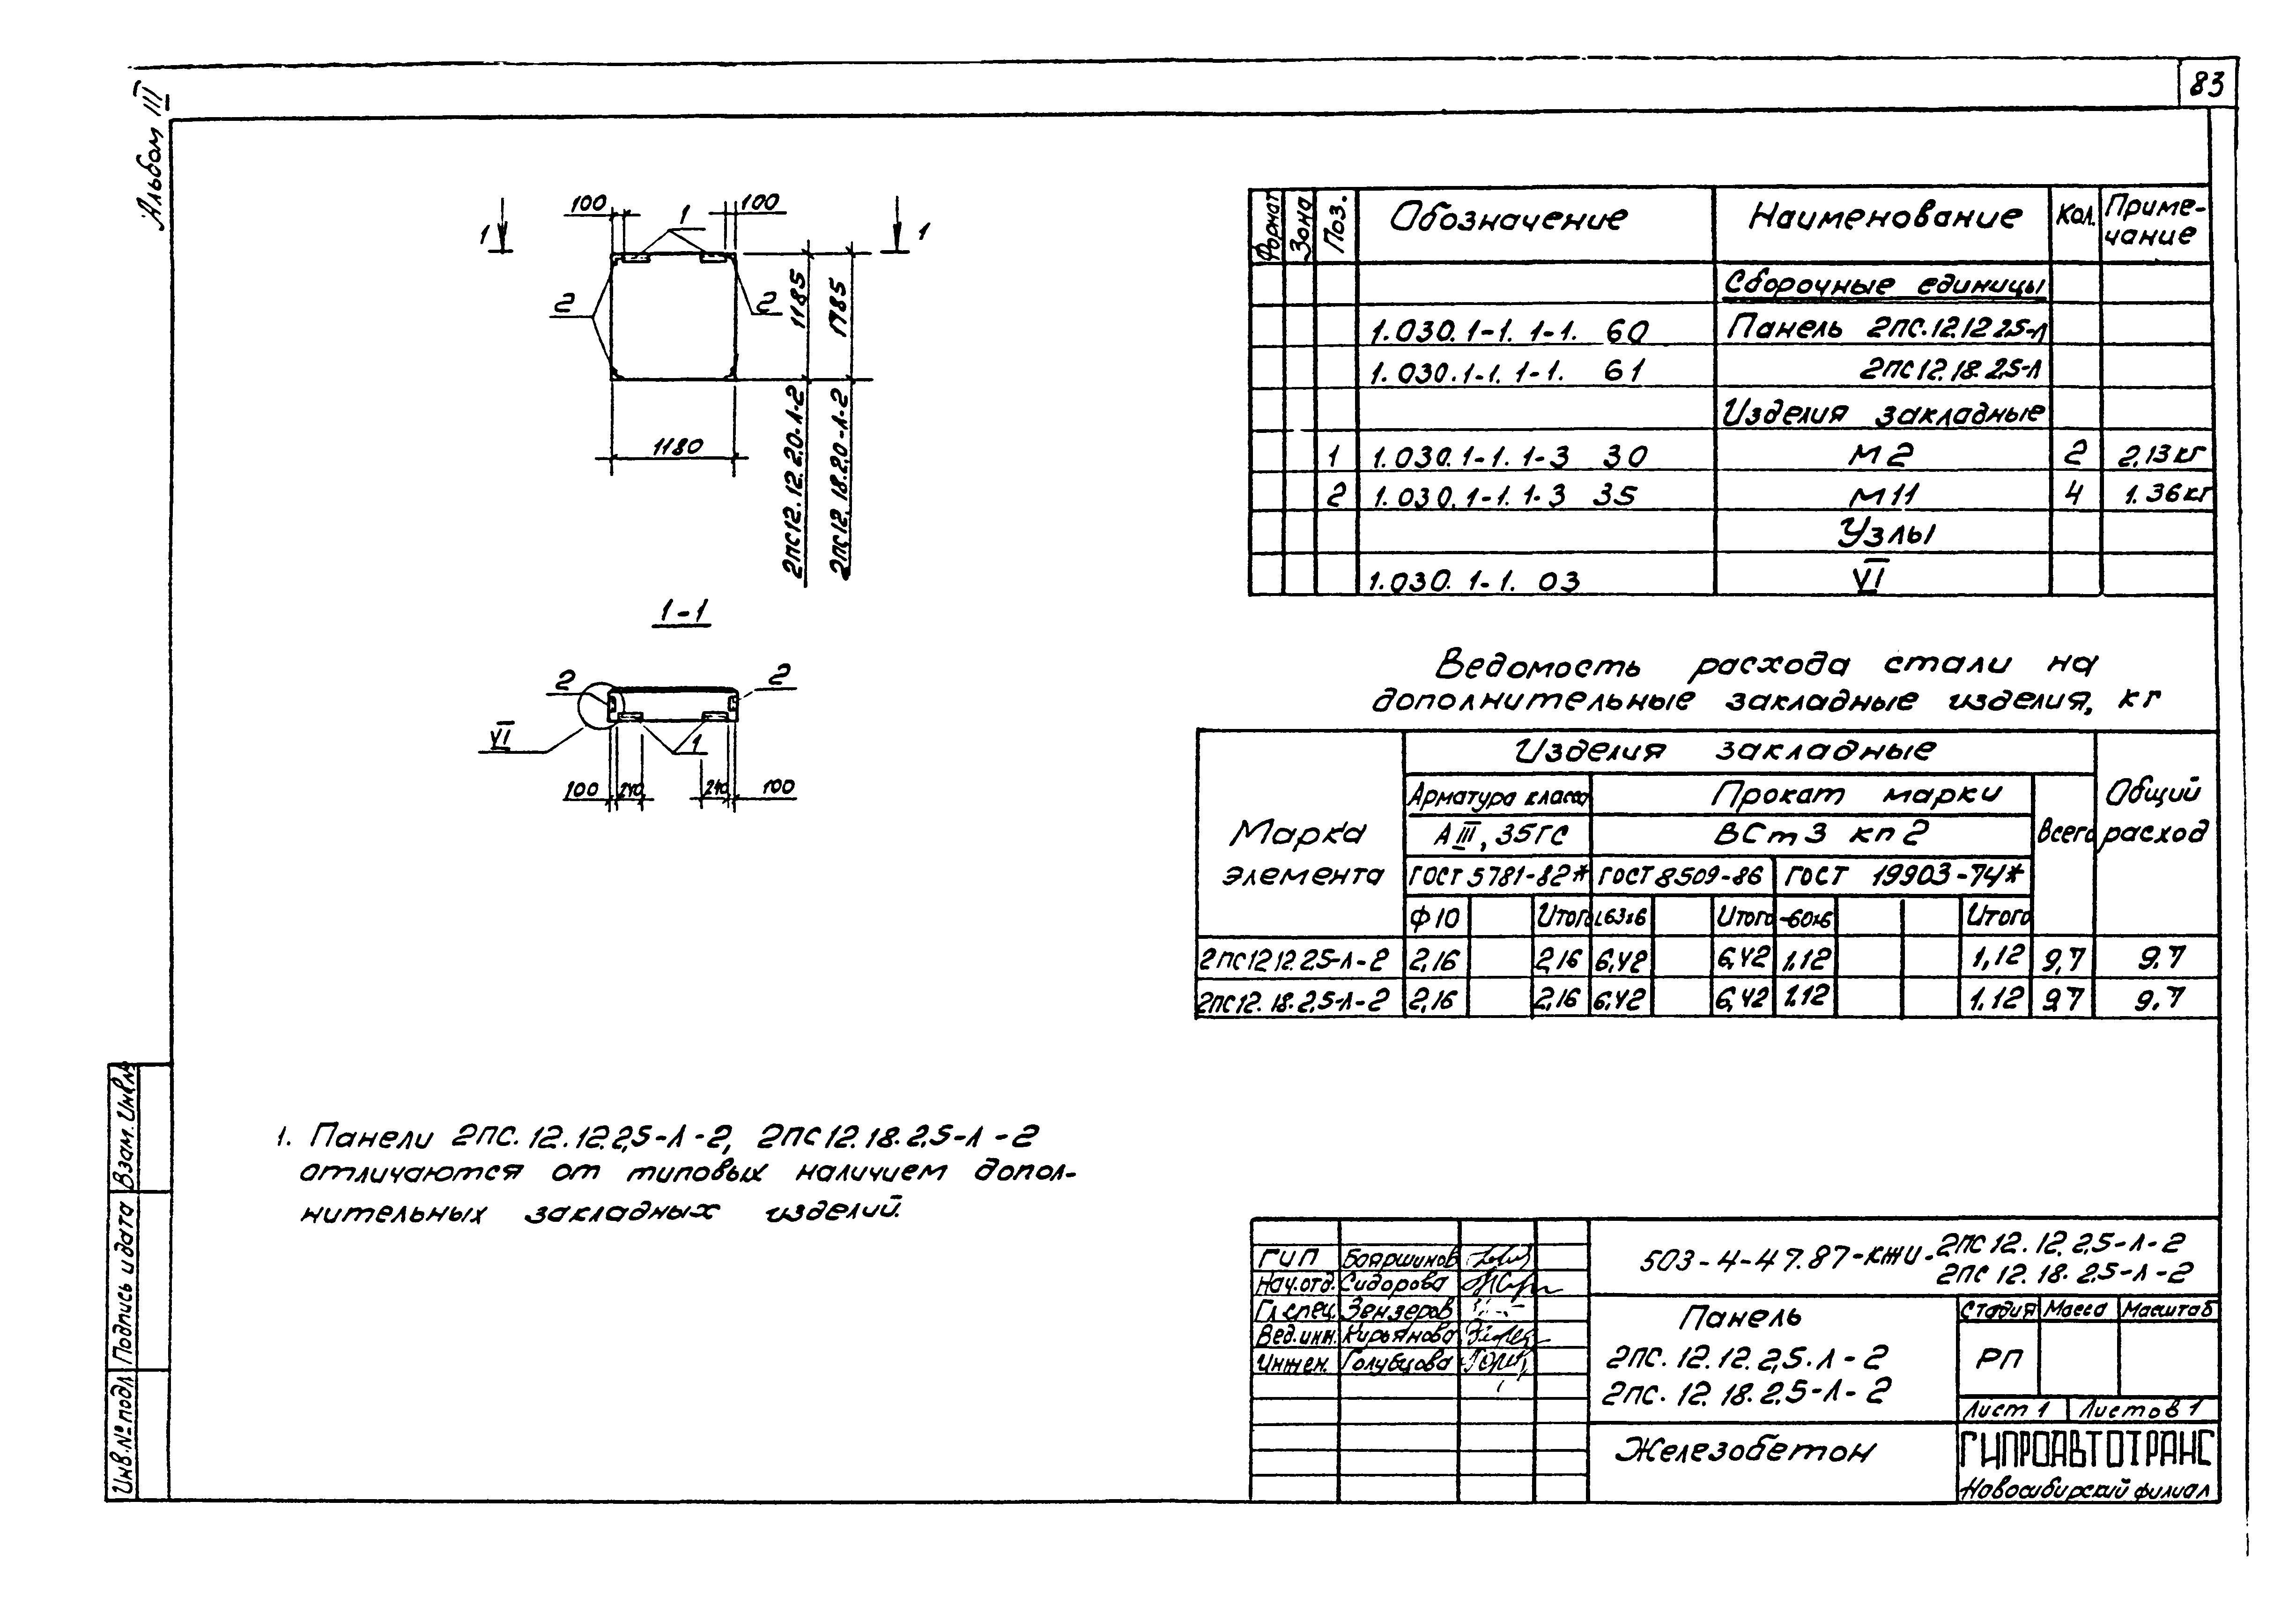 83
Альбом III
100 1 100
1 1
2 2
1185
1785
1180
2ПС12.12.2.0-Л-2
2ПС12.18.2.0-Л-2
1-1
2 2
VI 1
100 240 240 100
1. Панели 2ПС.12.12.2,5-Л-2, 2ПС12.18.2.5-Л-2
отличаются от типовых наличием допол-
нительных закладных изделий.
Формат Зона Поз. Обозначение Наименование Кол. Приме-
чание
Сборочные единицы
1.030.1-1. 1-1. 60 Панель 2ПС.12.12 2.5-Л
1.030.1-1. 1-1. 61 2ПС12.18.2,5-Л
Изделия закладные
1 1.030.1-1. 1-3 30 М2 2 2,13кг
2 1.030.1-1. 1-3 35 М11 4 1.36кг
Узлы
1.030.1-1. 03 VI
Ведомость расхода стали на
дополнительные закладные изделия, кг
Марка
элемента
Изделия закладные
Общий
расход
Арматура класса Прокат марки Всего
АIII, 35ГС ВСт3 кп2
ГОСТ 5781-82* ГОСТ 8509-86 ГОСТ 19903-74*
Ф10 Итого L63х6 Итого -60х6 Итого
2ПС12 12.2.5-Л-2 2,16 2,16 6,42 6,42 1.12 1,12 9,7 9.7
2ПС12.18.2,5-Л-2 2,16 2,16 6,42 6,42 1.12 1.12 9,7 9.7
ГИП Бояршинов
Нач.отд. Сидорова
Гл.спец. Зензеров
Вед.инж. Кирьянова
Инжен. Голубцова
503-4-47.87-КЖИ-2ПС12.12.2,5-Л-2
2ПС12.18.2.5-Л-2
Панель
2ПС.12.12.2,5.Л-2
2ПС.12.18.2.5-Л-2
Стадия Масса Масштаб
РП
Лист 1 Листов 1
Железобетон
ГИПРОАВТОТРАНС
Новосибирский филиал
Взам. Инв.№
Подпись и дата
Инв.№ подл.